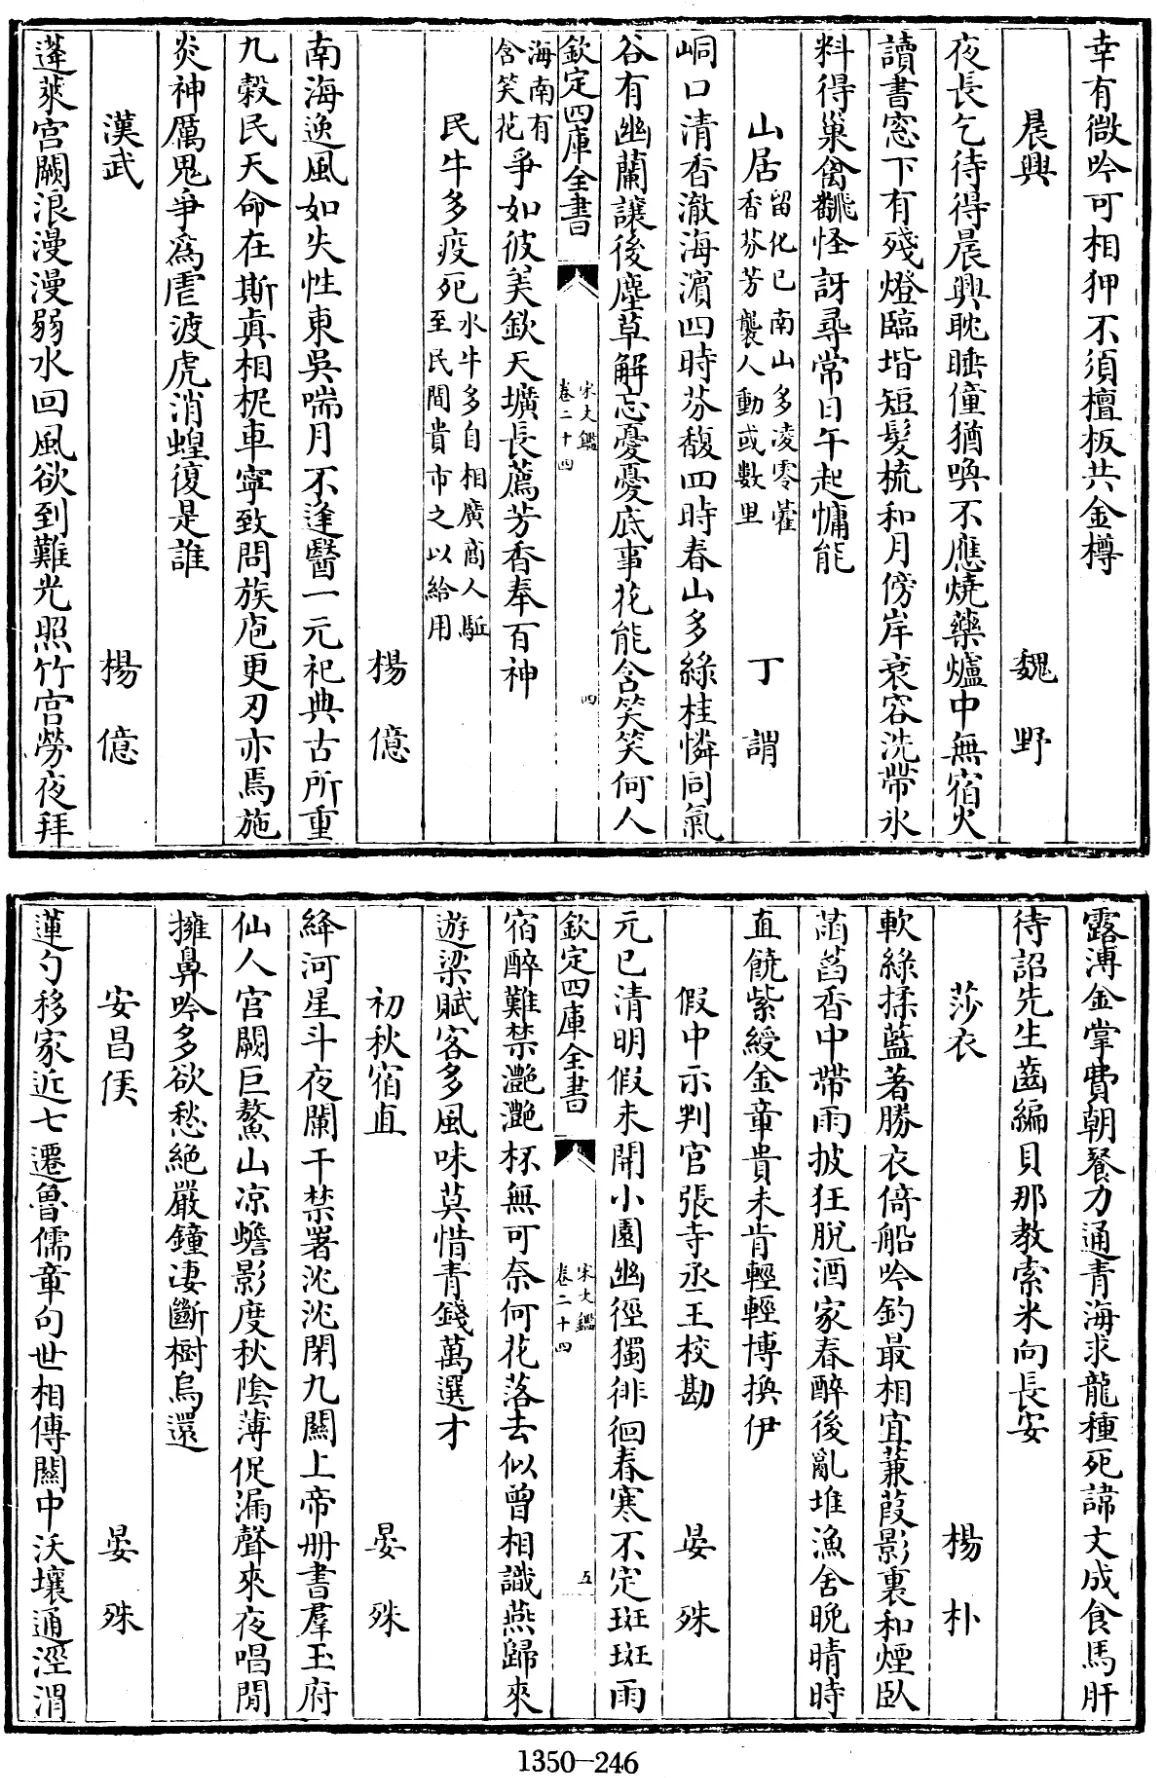 幸有微吟可相狎不須檀板共金樽
晨興 魏野
夜長乞待得晨興耽睡僮猶喚不應燒藥爐中無宿火
讀書窓下有殘燈臨堦短髮梳和月傍岸衰容洗帶氷
料得巢禽翻怪訝尋常日午起慵能
山居留化已南山多凌零藿
香芬芳襲人動或數里 丁謂
峒口清香澈海濵四時芬馥四時春山多綠桂憐同氣
谷有幽蘭讓後塵草解忘憂憂底事花能含笑笑何人
欽定四庫全書 宋文鑑
卷二十四 四
海南有
含笑花爭如彼美欽天壙長薦芳香奉百神
民牛多疫死水牛多自相廣商人駈
至民間貴市之以給用 楊億
南海逸風如失性東吳喘月不逢醫一元祀典古所重
九穀民天命在斯真相柅車寧致問族庖更刃亦焉施
炎神厲鬼爭為虐波虎消蝗復是誰
漢武 楊億
蓬萊宮闕浪漫漫弱水回風欲到難光照竹宮勞夜拜
露漙金掌費朝餐力通青海求龍種死諱文成食馬肝
待詔先生齒編貝那教索米向長安
莎衣 楊朴
軟綠揉藍著勝衣倚船吟釣最相宜蒹葭影裏和煙臥
菡萏香中帶雨披狂脫酒家春醉後亂堆漁舍晚晴時
直饒紫綬金章貴未肯輕輕博換伊
假中示判官張寺丞王校勘 晏殊
元已清明假未開小園幽徑獨徘徊春寒不定斑斑雨
欽定四庫全書 宋文鑑
卷二十四 五
宿醉難禁灔灔杯無可奈何花落去似曾相識燕歸來
遊梁賦客多風味莫惜青錢萬選才
初秋宿直 晏殊
絳河星斗夜闌干禁署沈沈閉九關上帝冊書羣玉府
仙人宮闕巨鰲山凉蟾影度秋陰薄促漏聲來夜唱閒
擁鼻吟多欲愁絕嚴鐘凄斷樹烏還
安昌侯 晏殊
蓮勺移家近七遷魯儒章句世相傳關中沃壤通涇渭
1350-246